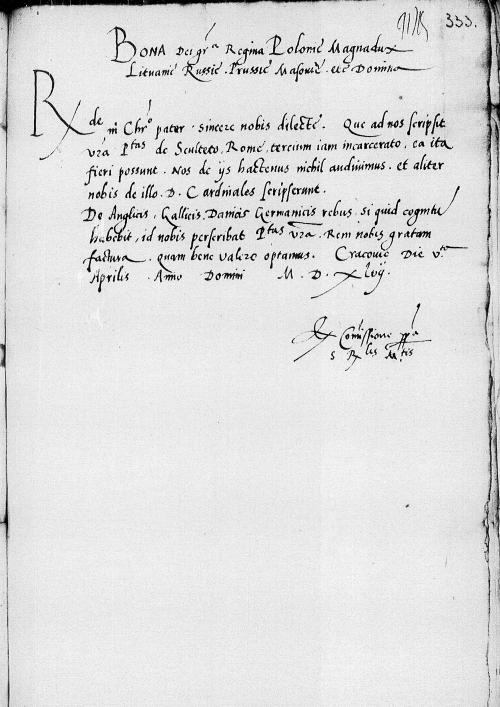 333.
BONA Dei gr͞a Regina Polonie Magnadux
Lituanie Russie . Prussie Masouie . etc Domina
Rde in Chr̃o pater . sincere nobis dilecte . Que ad nos scripsit
vr̃a Ptas de Sculteto . Rome . tercium iam incarcerato, ea ita
fieri possunt . Nos de ijs hactenus nichil audiuimus . et aliter
nobis de illo . D . Cardinales scripserunt .
De Anglicis . Gallicis . Danicis Germanicis rebus . si quid cognitu
habebit, id nobis perscribat Ptas vr̃a . Rem nobis gratam
factura . quam bene valere optamus . Cracouie Die vta
Aprilis . Anno Domini M . D . xlvij .
Ex Com̃issione pp̃a
S Rles Mtis